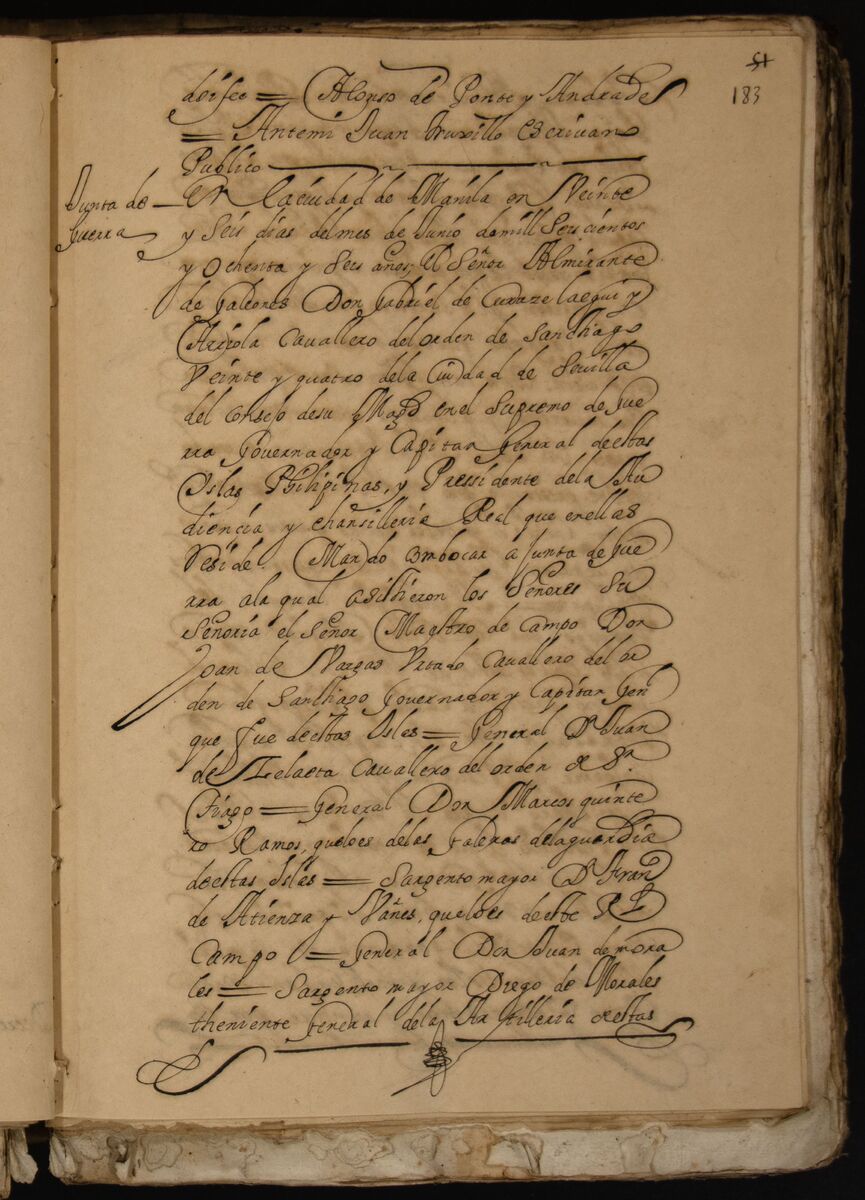 51
183
deisee = Alonso de Ponte y Andrade
= Antemi Juan truxillo Escrivano
Publico
Junta de
guerra
En la ciudad de Manila en Veinte
y seis dias del mes de Junio de mill seiscientos
y ochenta y seis años, El Señr Almirante
de Galeones Don Gabriel de Curuzelaegui y
Arriola Cavallero del orden de Sanctiago
Veinte y quatro dela Ciudad de Sevilla
del Consejo desu Magd en el Supremo de Gue
rra Governador y Capitan General destas
Islas Philipinas, y Pressidente dela Au
diencia y chansilleria Real que enellas
Reside. Mando combocar a Junta de Gue
rra ala qual asistieron los Señores Su
Señoria el Señor Maestro de Campo Don
Joan de Vargas Urtado Cavallero del or
den de Sanctiago Governador y Capitan Gen
que fue destas Islas = General Dn Juan
de Zelaeta Cavallero del orden de Sn
Tiago = General Don Marcos quinte
ro Ramos, queloes delas Galeras dela guardia
destas Islas = Sargento mayor Dn Fran
de Atienza y Vañes, queloes deste Rl
Campo = General Don Juan de mora
les = Sargento mayor Diego de Morales
theniente General dela Artilleria destas